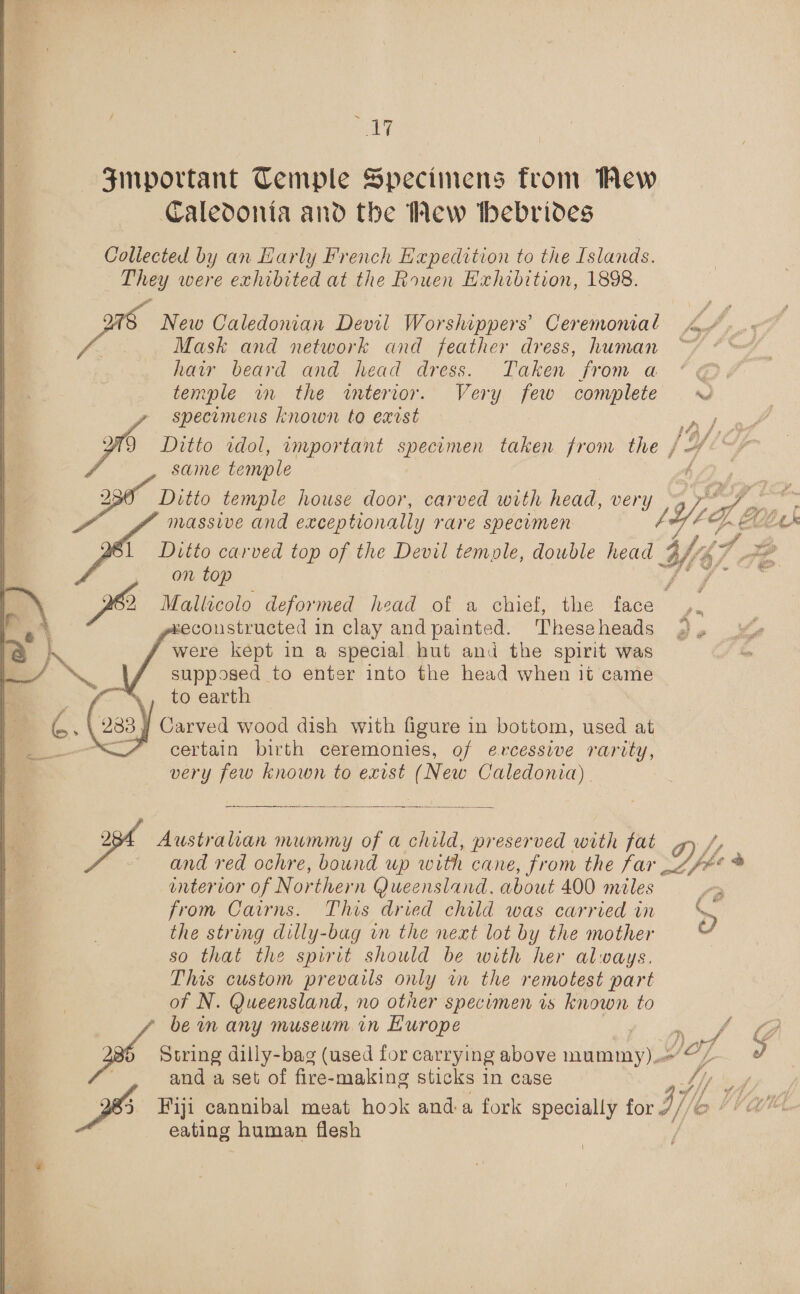 17
Important Temple Specimens from New
Caledonia and the New Hebrides
Collected by an Early French Expedition to the Islands.
They were exhibited at the Rouen Exhibition, 1898.
278 New Caledonian Devil Worshippers' Ceremonial
Mask and network and feather dress, human
hair beard and head dress. Taken from a
temple in the interior. Very few complete
specimens known to exist
279 Ditto idol, important specimen taken from the
same temple
280 Ditto temple house door, carved with head, very
massive and exceptionally rare specimen
281 Ditto carved top of the Devil temple, double head
on top
282 Mallicolo deformed head of a chief, the face
reconstructed in clay and painted. These heads
were kept in a special hut and the spirit was
supposed to enter into the head when it came
to earth
283 Carved wood dish with figure in bottom, used at
certain birth ceremonies, of excessive rarity,
very few known to exist (New Caledonia)
284 Australian mummy of a child, preserved with fat
and red ochre, bound up with cane, from the far
interior of Northern Queensland, about 400 miles
from Cairns. This dried child was carried in
the string dilly-bag in the next lot by the mother
so that the spirit should be with her always.
This custom prevails only in the remotest part
of N. Queensland, no other specimen is known to
be in any museum in Europe
286 String dilly-bag (used for carrying above mummy)
and a set of fire-making sticks in case
285 Fiji cannibal meat hook and a fork specially for
eating human flesh